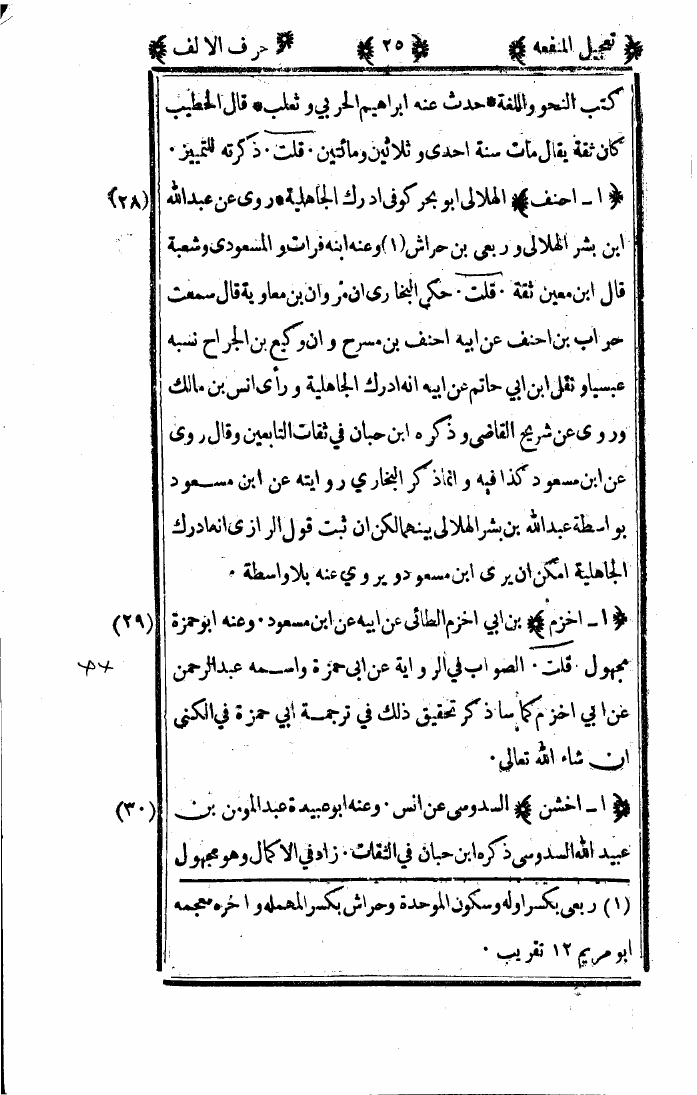 تعجيل المنفعه ﴿ ٢٥ ﴾ حرف الالف
كتب النحو واللغة * حدث عنه ابراهيم الحربي و ثعلب * قال الخطيب
كان ثقة يقال مات سنة احدى و ثلاثين ومائتين ٠ قلت ٠ ذكرته للتمييز ٠
﴿ ا ـ احنف ﴾ الهلالى ابو بحر كوفى ادرك الجاهلية * روى عن عبدالله (٢٨)
ابن بشر الهلالى و ربعى بن حراش (١) وعنه ابنه فرات و المسعودى وشعبة
قال ابن معين ثقة ٠ قلت ٠ حكى البخارى ان مروان بن معاوية قال سمعت
جراب بن احنف عن ابيه احنف بن مسرح و ان وكيع بن الجراح نسبه
عبسيا و نقل ابن ابي حاتم عن ابيه انه ادرك الجاهلية و رأى انس بن مالك
وروى عن شريح القاضى و ذكره ابن حبان في ثقات التابعين وقال روى
عن ابن مسعود كذا فيه و انما ذكر البخاري روايته عن ابن مسعود
بواسطة عبدالله بن بشر الهلالى بينهما لكن ان ثبت قول الرازى انه ادرك
الجاهلية امكن ان يرى ابن مسعود و يروي عنه بلا واسطة ٠
﴿ ا ـ اخزم ﴾ بن ابي اخزم الطائى عن ابيه عن ابن مسعود ٠ وعنه ابو حمزة (٢٩)
مجهول ٠ قلت ٠ الصواب في الرواية عن ابى حمزة واسمه عبدالرحمن
عن ابي اخزم كما ساذكر تحقيق ذلك في ترجمة ابي حمزة في الكنى
ان شاء الله تعالى ٠
﴿ ا ـ اخشن ﴾ السدوسى عن انس ٠ وعنه ابو عبيدة عبدالمومن بن (٣٠)
عبيد الله السدوسى ذكره ابن حبان في الثقات ٠ زاد في الاكمال وهو مجهول
(١) ربعى بكسر اوله وسكون الموحدة وحراش بكسر المهمله و اخره معجمه
ابو مريم ١٢ تقريب ٠